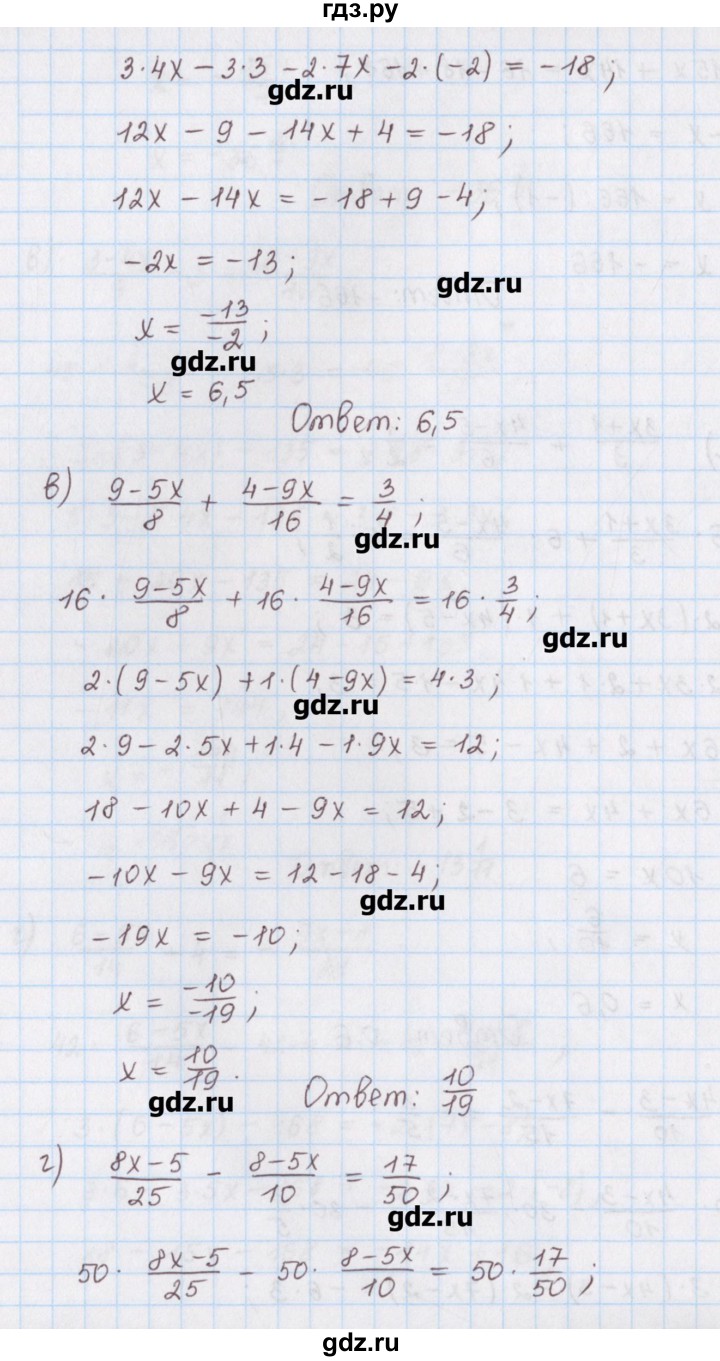 гдз.ру
3·4x − 3·3 − 2·7x − 2·(−2) = −18;
gdz.ru
12x − 9 − 14x + 4 = −18;
12x − 14x = −18 + 9 − 4;
−2x = −13;
gdz.ru
x = −13/−2;
gdz.ru
x = 6,5
Ответ: 6,5
в) (9−5x)/8 + (4−9x)/16 = 3/4;
gdz.ru
16· (9−5x)/8 + 16· (4−9x)/16 = 16· 3/4;
gdz.ru
2·(9−5x) + 1·(4−9x) = 4·3;
gdz.ru
2·9 − 2·5x + 1·4 − 1·9x = 12;
18 − 10x + 4 − 9x = 12;
−10x − 9x = 12 − 18 − 4;
gdz.ru
−19x = −10;
x = −10/−19;
x = 10/19.
gdz.ru
Ответ: 10/19
г) (8x−5)/25 − (8−5x)/10 = 17/50;
gdz.ru
50· (8x−5)/25 − 50· (8−5x)/10 = 50· 17/50;
gdz.ru